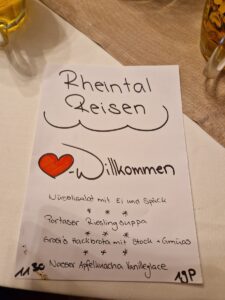 Rheintal
Reisen
Willkommen
Nüsslisalat mit Ei und Späck
* * *
Portaser Rieslingsuppa
* * *
Groosi's Hackbrota mit Stock + Gmüas
* * *
Apfelkuacha Vanilleglace
1130
19P